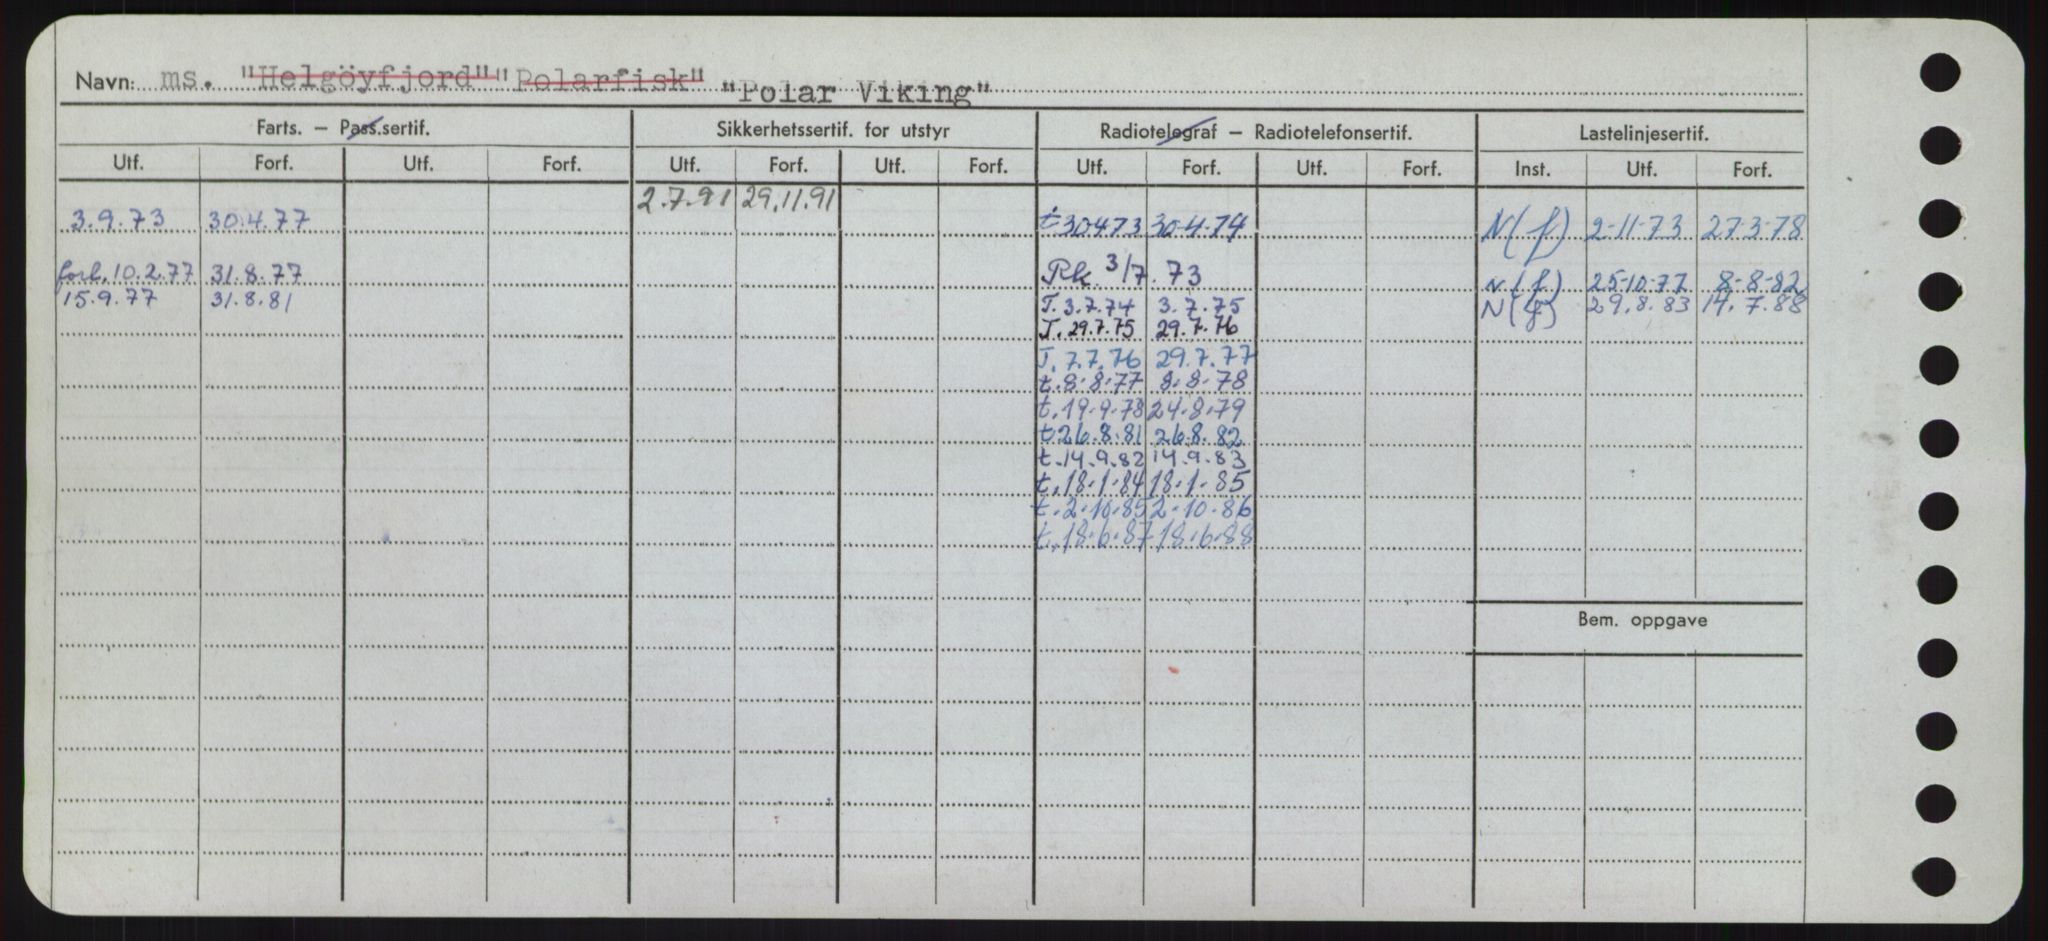 Navn: ms. "Helgöyfjord" "Polarfisk" "Polar Viking"
Farts. – Pass.sertif. Sikkerhetssertif. for utstyr Radiotelegraf – Radiotelefonsertif. Lastelinjesertif.
Utf. Forf. Utf. Forf. Utf. Forf. Utf. Forf. Utf. Forf. Utf. Forf. Inst. Utf. Forf.
2.7.91 29.11.91
3.9.73 30.4.77 t 30473 30-4-74 N(f) 2-11-73 27-3-78
forl. 10.2.77 31.8.77 Rk. 3/7.73 N(f) 25-10-77 8-8-82
15.9.77 31.8.81 T. 3.7.74 3.7.75 N(f) 29.8.83 14.7.88
T. 29.7.75 29.7.76
T. 7.7.76 29.7.77
t. 8-8-77 8-8-78
t. 19-9-78 24-8-79
t. 26.8.81 26.8.82
t. 14.9.82 14.9.83
t. 18-1-84 18-1-85
t. 2-10-85 2-10-86
t. 18-6-87 18-6-88
Bem. oppgave